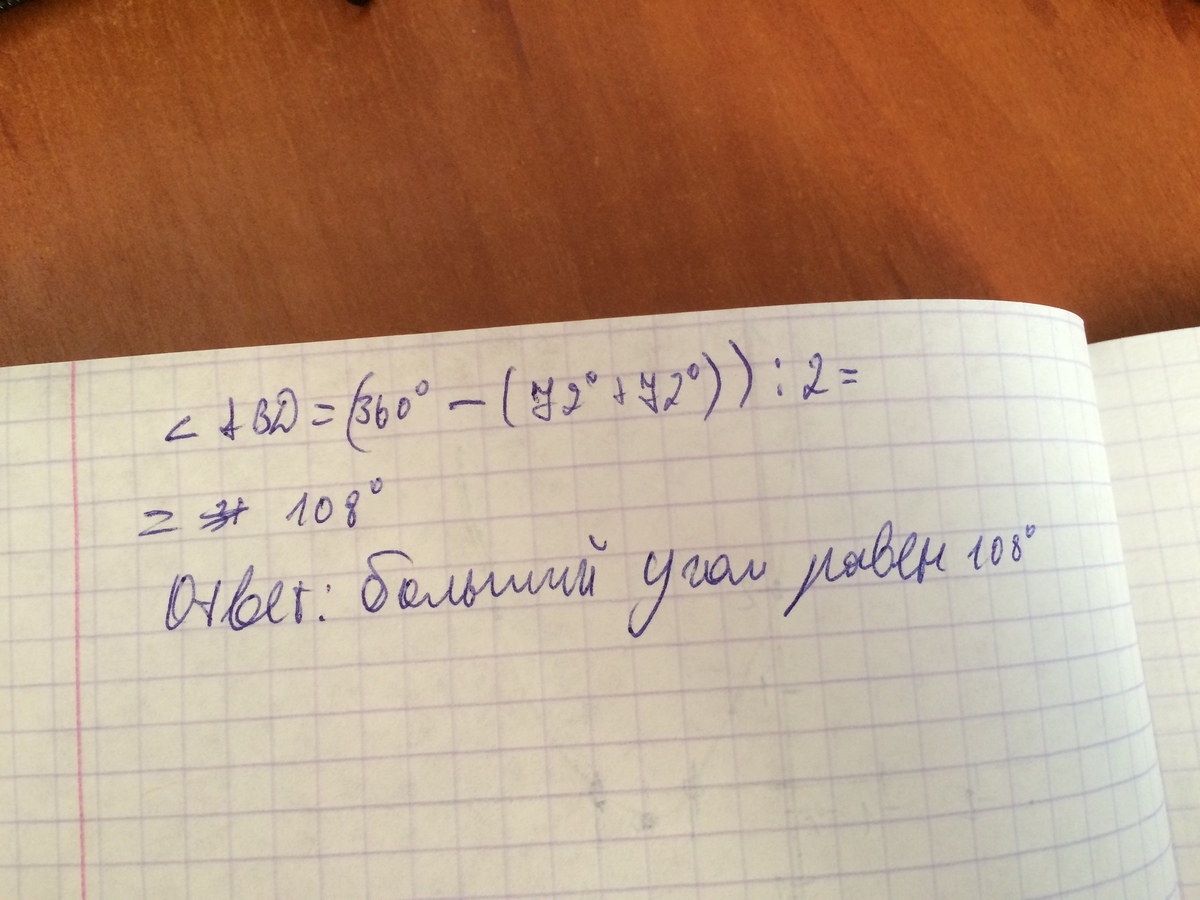 < ABD = (360° - (72° + 72°)) : 2 =
= 108°
Ответ: больший угол равен 108°